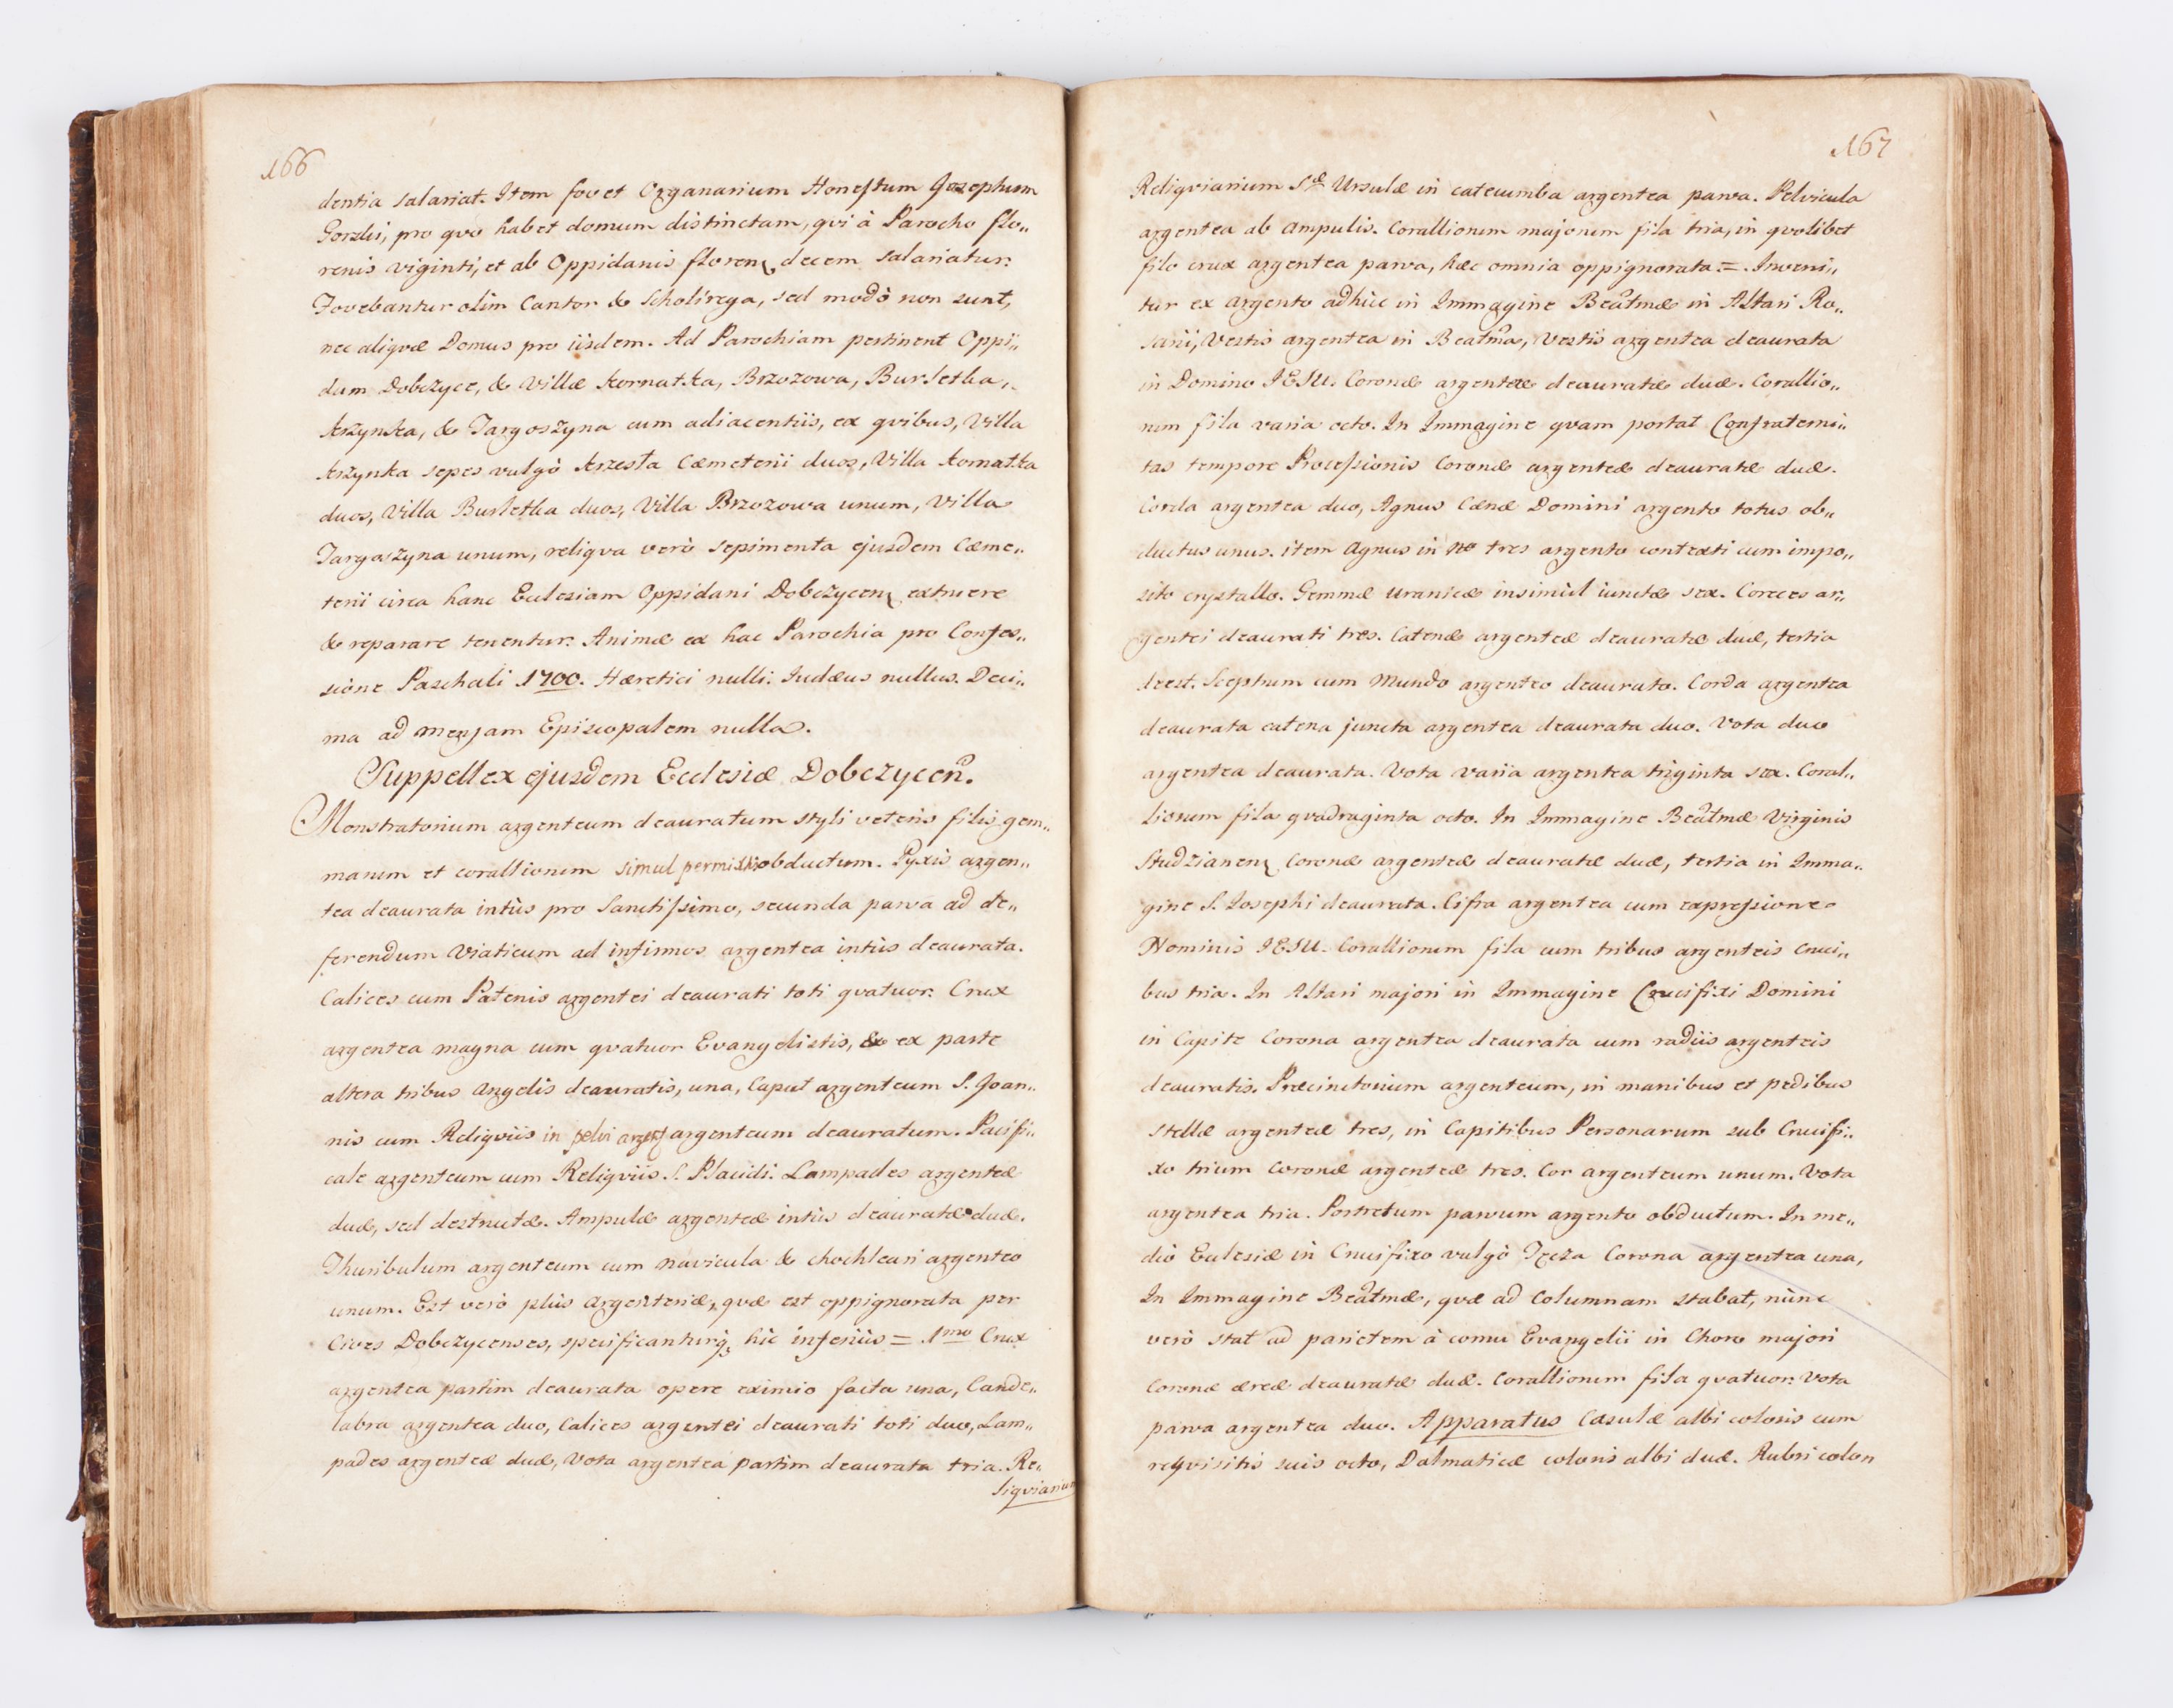 166
dentia salariat. Item fovet Organarium Honestum Josephum
Gorski, pro quo habet domum distinctam, qvi à Parocho flo„
renis viginti, et ab Oppidanis floren. decem salariatur.
Fovebantur olim Cantor & Scholirega, sed modò non sunt,
nec aliqvæ Domus pro iisdem. Ad Parochiam pertinent Oppi„
dum Dobczyce, & Villæ Kornatka, Brzozowa, Burletka,
Krzynka, & Targoszyna cum adiacentiis, ex qvibus, Villa
Krzynka sepes vulgò krzesła Cæmeterii duos, Villa Kornatka
duos, Villa Burletka duos, Villa Brzozowa unum, Villa
Targoszyna unum, reliqva verò sepimenta ejusdem Cæme„
terii circa hanc Ecclesiam Oppidani Dobczycen. extruere
& reparare tenentur. Animæ ex hac Parochia pro Confes„
sione Paschali 1700. Hæretici nulli. Iudæus nullus. Deci„
ma ad mensam Episcopalem nulla.
Suppellex ejusdem Ecclesiæ Dobczycen.
Monstratorium argenteum deauratum styli veteris filis gem„
marum et corallionum simul permistis obductum. Pyxis argen„
tea deaurata intùs pro Sanctissimo, secunda parva ad de„
ferendum Viaticum ad infirmos argentea intùs deaurata.
Calices cum Patenis argentei deaurati toti qvatuor. Crux
argentea magna cum qvatuor Evangelistis, & ex parte
altera tribus Angelis deauratis, una, Caput argenteum S. Joan„
nis cum Reliqviis in pelvi argenteum deauratum. Pacifi„
cale argenteum cum Reliqviis S. Placidi. Lampades argenteæ
duæ, sed destructæ. Ampulæ argenteæ intùs deauratæ duæ.
Thuribulum argenteum cum navicula & chochleari argenteo
unum. Est verò plùs Argenteriæ, qvæ est oppignorata per
Cives Dobczycenses, specificanturq; hic inferiùs = 1mo Crux
argentea partim deaurata opere eximio facta una, Cande„
labra argentea duo, Calices argentei deaurati toti duo, Lam„
pades argenteæ duæ, Vota argentea partim deaurata tria. Re„
liqviarium
167
Reliqviarium Stæ Ursulæ in catecumba argentea parva. Pelvicula
argentea ab Ampulis. Corallionum majorum fila tria, in qvolibet
filo crux argentea parva, hæc omnia oppignorata =. Inveni„
tur ex Argento adhùc in Immagine Beatmæ in Altari Ro„
sarii, Vestis argentea in Beatma, Vestis argentea deaurata
in Domino IESU. Coronæ argenteæ deauratæ duæ. Corallio„
num fila varia octo. In Immagine qvam portat Confraterni„
tas tempore Processionis Coronæ argenteæ deauratæ duæ.
Corda argentea duo, Agnus Cænæ Domini argento totus ob„
ductus unus. item Agnus in No tres argento contexti cum impo„
sito crystallo. Gemmæ uranicæ insimùl iunctæ sex. Cerces ar„
gentei deaurati tres. Catenæ argenteæ deauratæ duæ, tertia
deest. Sceptrum cum Mundo argenteo deaurato. Corda argentea
deaurata catena juncta argentea deaurata duo. Vota duo
argentea deaurata. Vota varia argentea triginta sex. Coral„
lionum fila qvadraginta octo. In Immagine Beatmæ Virginis
Studzianen. Coronæ argenteæ deauratæ duæ, tertia in Imma„
gine S. Iosephi deaurata. Cifra argentea cum expressione
Nominis IESU. Corallionum fila cum tribus argenteis Cruci„
bus tria. In Altari majori in Immagine Crucifixi Domini
in Capite Corona argentea deaurata cum radiis argenteis
deauratis. Præcinctorium argenteum, in manibus et pedibus
stellæ argenteæ tres, in Capitibus Personarum sub Crucifi„
xo trium Coronæ argenteæ tres. Cor argenteum unum. Vota
argentea tria. Portretum parvum argento obductum. In me„
dio Ecclesiæ in Crucifixo vulgò Tęcza Corona argentea una,
In Immagine Beatmæ, qvæ ad Columnam stabat, nùnc
verò stat ad parietem à cornu Evangelii in Choro majori
Coronæ æreæ deauratæ duæ. Corallionum fila qvatuor. Vota
parva argentea duo. Apparatus Casulæ albi coloris cum
reqvisitis suis octo, Dalmaticæ coloris albi duæ. Rubri color